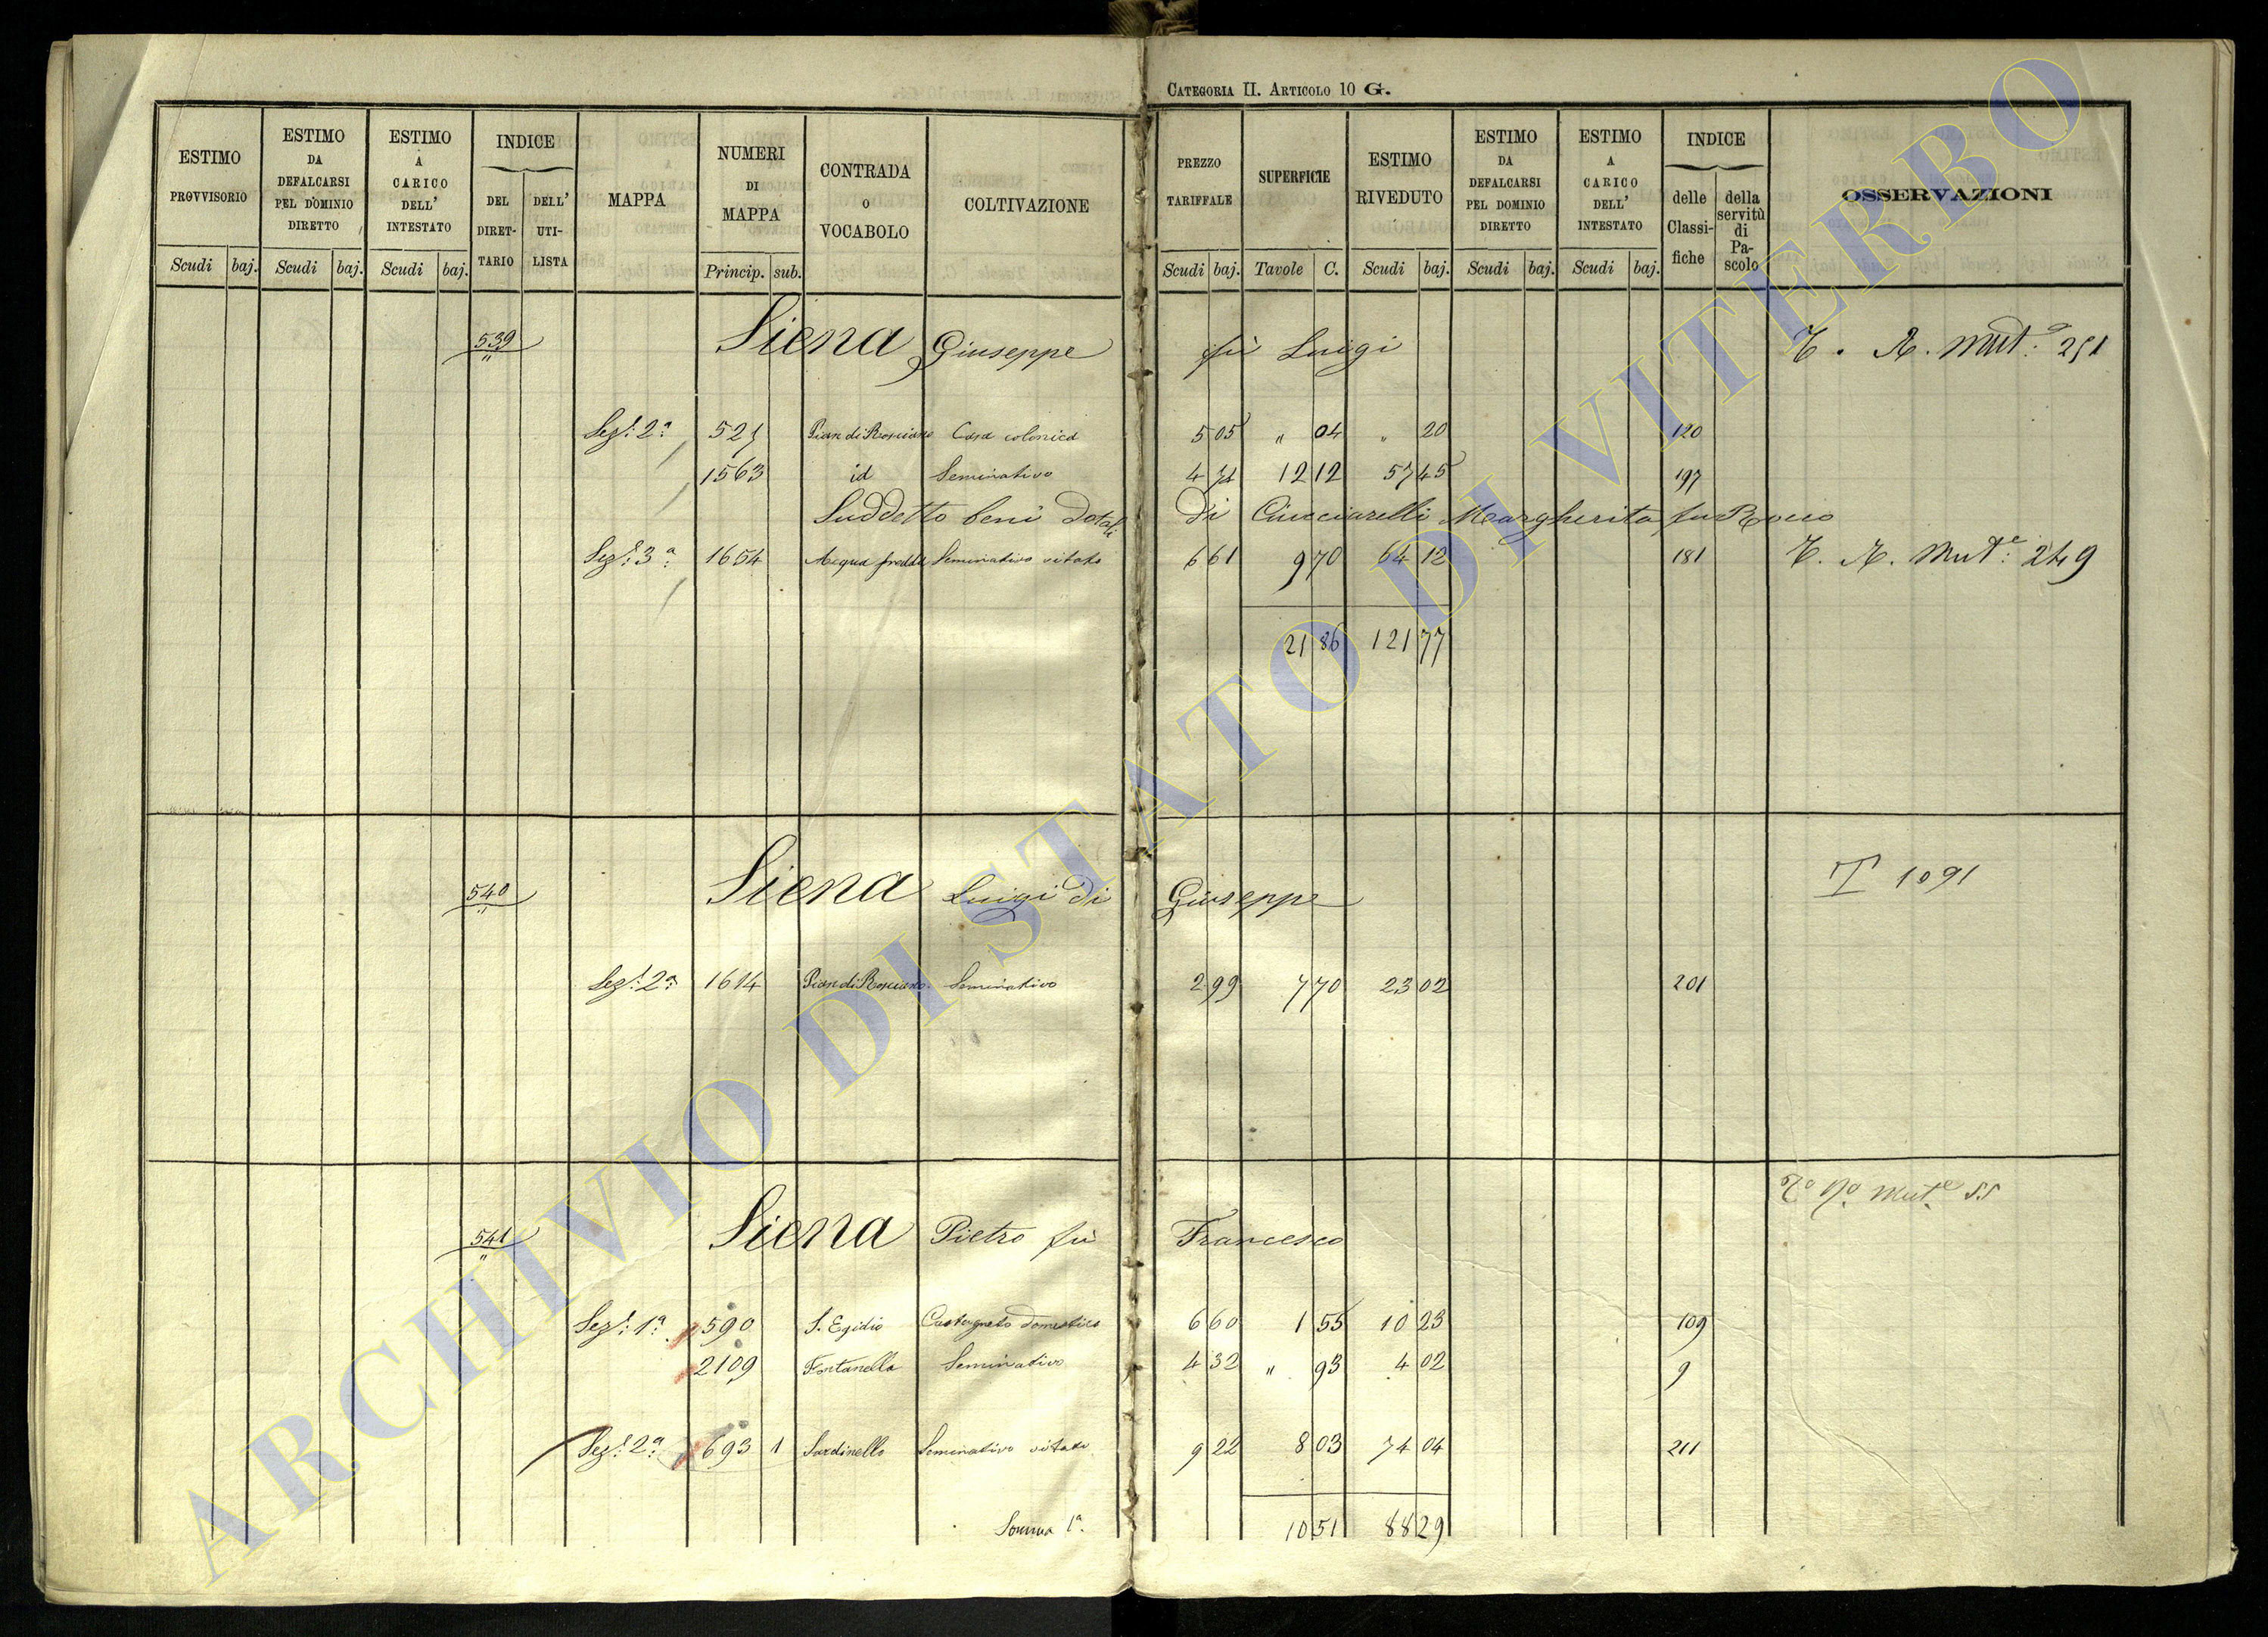 CATEGORIA II. ARTICOLO 10 G.
ESTIMO PROVVISORIO Scudi baj. ESTIMO DA DEFALCARSI PEL DOMINIO DIRETTO Scudi baj. ESTIMO A CARICO DELL' INTESTATO Scudi baj. INDICE DEL DIRET-TARIO DELL' UTI-LISTA MAPPA NUMERI DI MAPPA Princip. sub. CONTRADA O VOCABOLO COLTIVAZIONE PREZZO TARIFFALE Scudi baj. SUPERFICIE Tavole C. ESTIMO RIVEDUTO Scudi baj. ESTIMO DA DEFALCARSI PEL DOMINIO DIRETTO Scudi baj. ESTIMO A CARICO DELL' INTESTATO Scudi baj. INDICE delle Classi-fiche della servitù di Pa-scolo OSSERVAZIONI
539 " Siena Giuseppe fù Luigi
Sez.e 2a 521 Pian di Rosciano Casa colonica 5 05 " 04 " 20 120
1563 id Seminativo 4 74 12 12 57 45 197
Suddetto beni dotali di Ciucciarelli Margherita fu Rocco
Sez.e 3a 1654 Acqua fredda Seminativo vitato 6 61 9 70 64 12 181 Mut.e 249
21 86 121 77
540 " Siena Luigi di Giuseppe T 1091
Sez.e 2a 1614 Pian di Rosciano Seminativo 2 99 7 70 23 02 201
541 " Siena Pietro fù Francesco
Sez.e 1a 590 S. Egidio Castagneto domestico 6 60 1 55 10 23 109
2109 Fontanella Seminativo 4 32 " 93 4 02 9
Sez.e 2a 693 1 Sardinello Seminativo vitato 9 22 8 03 74 04 211
Somma 1a 10 51 88 29
ARCHIVIO DI STATO DI VITERBO